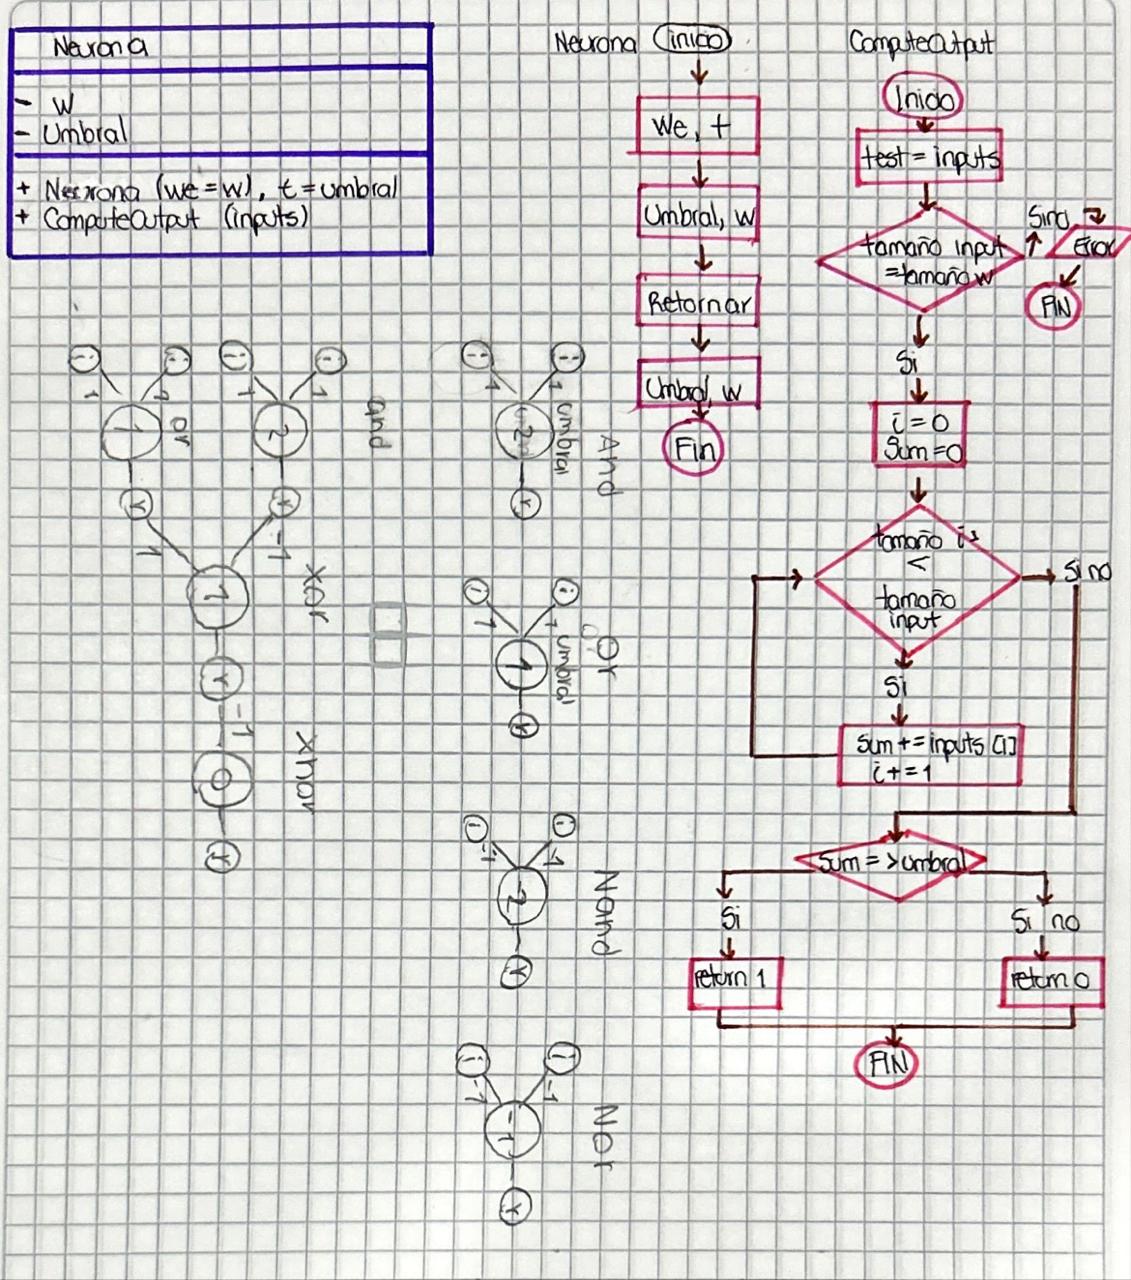 Neurona
- w
- Umbral
+ Neurona (we=w), t=umbral
+ ComputeOutput (inputs)
Neurona
inicio
We, t
Umbral, w
Retornar
Umbral, w
Fin
ComputeOutput
Inicio
test = inputs
tamaño input
=tamaño w
Sino
Error
FIN
Si
i=0
Sum=0
tamaño i
<
tamaño
input
Si no
Si
Sum += inputs [i]
i+=1
Sum = >umbral
Si
return 1
Si no
return 0
FIN
i
i
1
1
1
or
Y
1
i
i
1
1
2
and
Y
-1
1
Xor
Y
-1
0
Xnor
Y
i
i
1
1
2
umbral
And
Y
i
i
1
1
1
umbral
Or
Y
i
i
-1
-1
Nand
Y
i
i
-1
-1
-1
Nor
Y